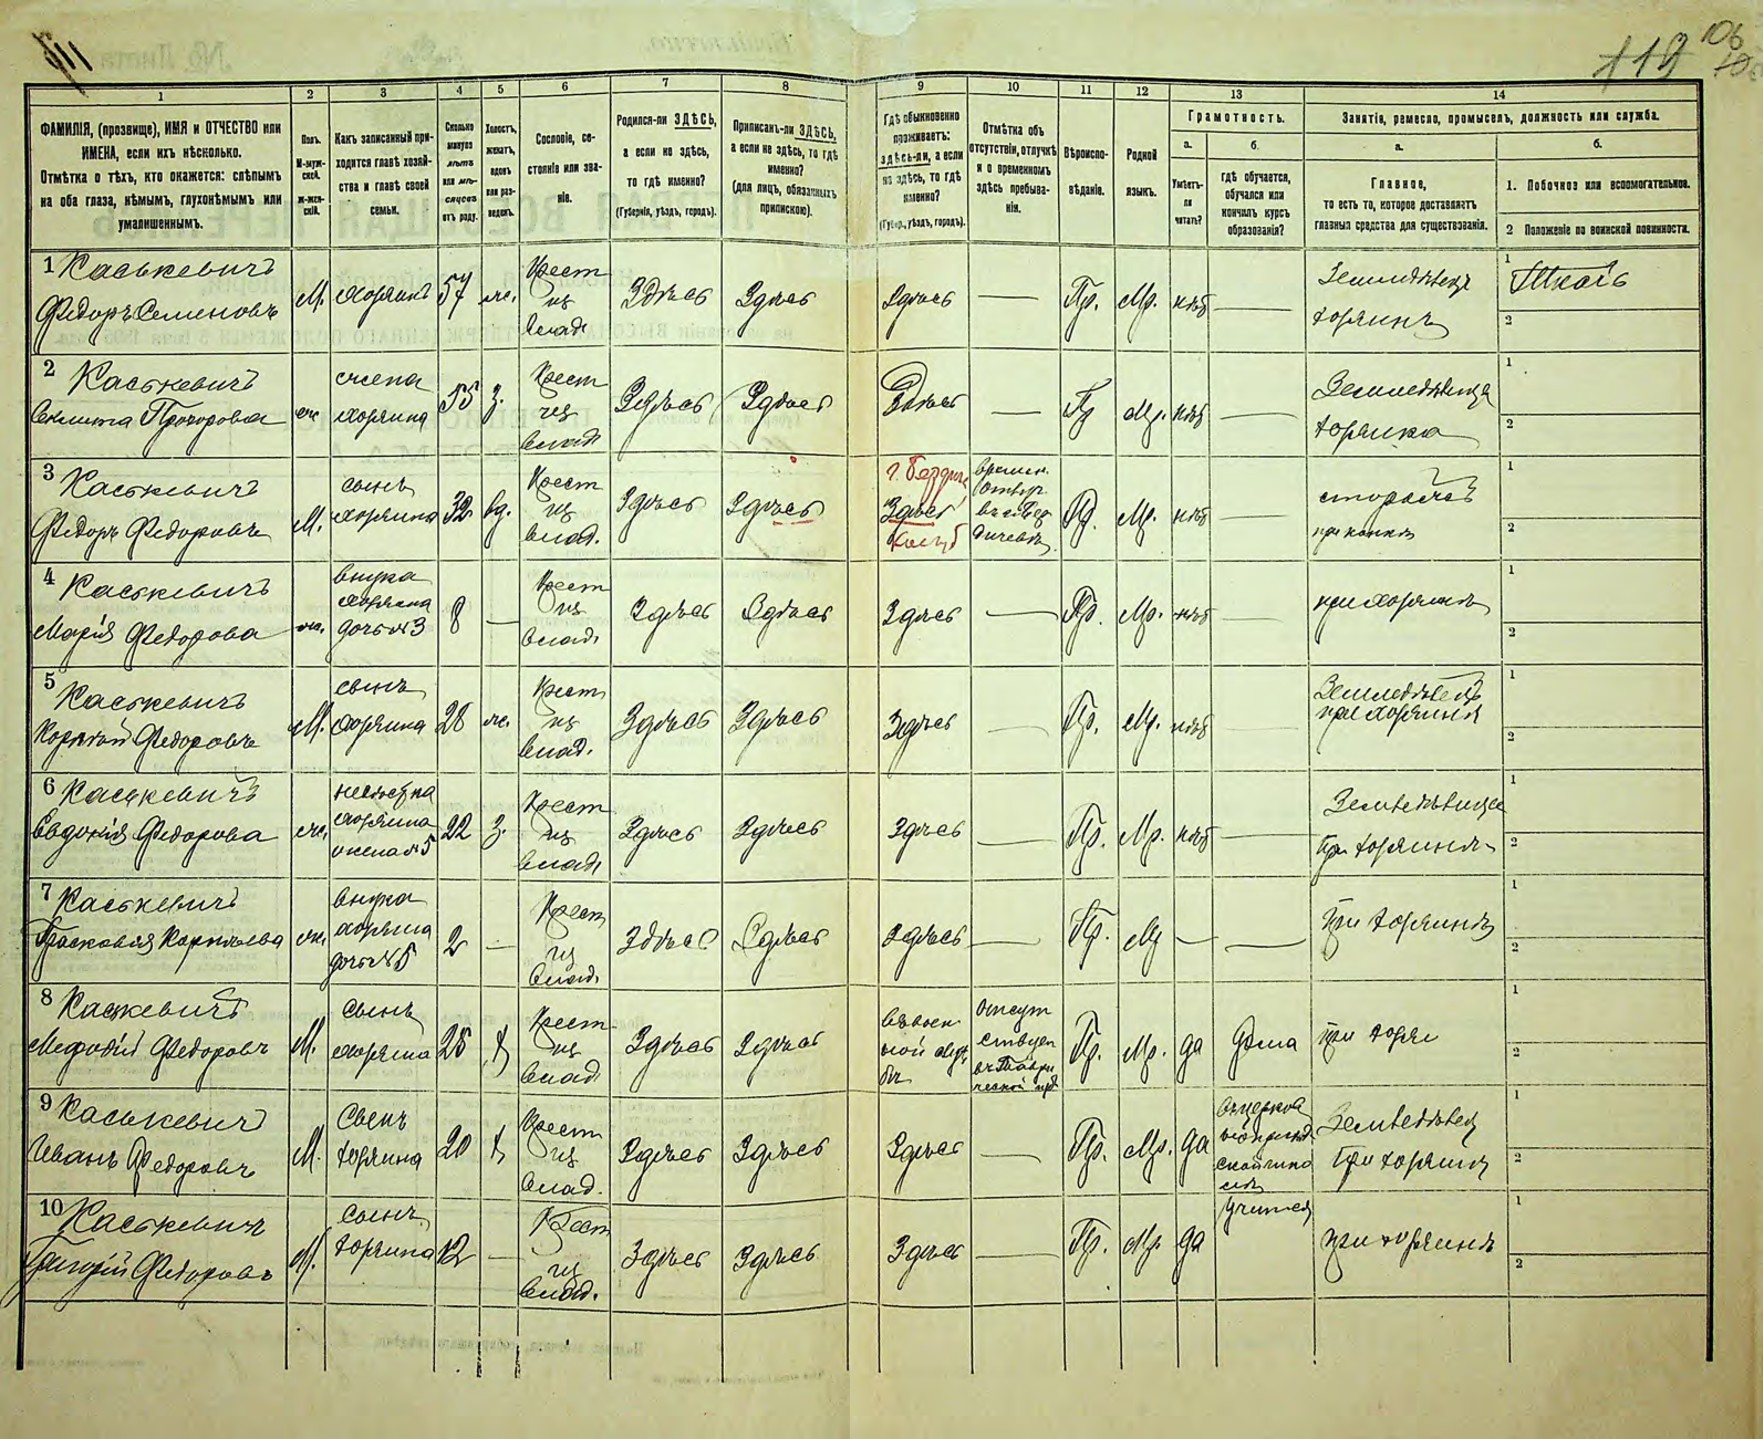 119
106
1
2
3
4
5
6
7
8
9
10
11
12
13
14
ФАМИЛІЯ, (прозвище), ИМЯ и ОТЧЕСТВО или
ИМЕНА, если ихъ нѣсколько.
Отмѣтка о тѣхъ, кто окажется: слѣпымъ
на оба глаза, нѣмымъ, глухонѣмымъ или
умалишеннымъ.
Полъ.
М-муж-
ской.
ж-жен-
скій.
Какъ записанный при-
ходится главѣ хозяй-
ства и главѣ своей
семьи.
Сколько
минуло
лѣтъ
или мѣ-
сяцевъ
отъ роду.
Холостъ,
женатъ,
вдовъ
или раз-
веденъ.
Сословіе, со-
стояніе или зва-
ніе.
Родился-ли ЗДѢСЬ,
а если не здѣсь,
то гдѣ именно?
(Губернія, уѣздъ, городъ).
Приписанъ-ли ЗДѢСЬ,
а если не здѣсь, то гдѣ
именно?
(для лицъ, обязанныхъ
припискою).
Гдѣ обыкновенно
проживаетъ:
здѣсь-ли, а если
не здѣсь, то гдѣ
именно?
(Губер., уѣздъ, городъ).
Отмѣтка объ
отсутствіи, отлучкѣ
и о временномъ
здѣсь пребыва-
ніи.
Вѣроиспо-
вѣданіе.
Родной
языкъ.
Грамотность.
а.
Умѣетъ-
ли
читать?
б.
гдѣ обучается,
обучался или
кончилъ курсъ
образованія?
Занятіе, ремесло, промыселъ, должность или служба.
а.
Главное,
то есть то, которое доставляетъ
главныя средства для существованія.
б.
1. Побочное или вспомогательное.
2 Положеніе по воинской повинности.
1 Каськевичъ
Федоръ Семеновъ
М.
хозяинъ
57
же.
Крест
из
влад.
Здѣсь
Здѣсь
Здѣсь
Пр.
Мр.
нѣт
Земледѣлец
хозяинъ
1 Ткачъ
2
2 Каськевичъ
Прохорова
же
жена
хозяина
55
з.
Крест
из
влад.
Здѣсь
Здѣсь
Здѣсь
Пр
Мр.
нѣт
Земледѣлица
хозяйка
1
2
3 Каськевичъ
Федоръ Федоровъ
М.
сынъ
хозяина
32
вд.
Крест
из
влад.
Здѣсь
Здѣсь
Здѣсь
Пр.
Мр.
нѣт
сторожъ
1
2
4 Каськевичъ
Марія Федорова
же.
внука
хозяина
дочь № 3
8
Крест
из
влад.
Здѣсь
Здѣсь
Здѣсь
Пр.
Мр.
нѣт
при хозяинѣ
1
2
5 Каськевичъ
Корнѣй Федоровъ
М.
сынъ
хозяина
28
же.
Крест
из
влад.
Здѣсь
Здѣсь
Здѣсь
Пр.
Мр.
нѣт
Земледѣлецъ
при хозяинѣ
1
2
6 Каськевичъ
Евдокія Федорова
же.
невѣстка
хозяина
жена № 5
22
з.
Крест
из
влад.
Здѣсь
Здѣсь
Здѣсь
Пр.
Мр.
нѣт
Земледѣлица
при хозяинѣ
1
2
7 Каськевичъ
Прасковья Корнѣева
же.
внука
хозяина
дочь № 5
2
Крест
из
влад.
Здѣсь
Здѣсь
Здѣсь
Пр.
Мр
При хозяинѣ
1
2
8 Каськевичъ
Мефодій Федоровъ
М.
сынъ
хозяина
25
х
Крест
из
влад.
Здѣсь
Здѣсь
въ воен
ной служ
бѣ
Отсут
ствует
въ Таври
ческой губ
Пр.
Мр.
да
Дома
При хозяи
1
2
9 Каськевич
Иванъ Федоровъ
М.
Сынъ
хозяина
20
х
Крест
из
влад.
Здѣсь
Здѣсь
Здѣсь
Пр.
Мр.
да
Въ церков
но приход
ской шко
лѣ
Земледѣлец
При хозяинѣ
1
2
10 Каськевичъ
Григорій Федоровъ
М.
Сынъ
хозяина
12
Крест
из
влад.
Здѣсь
Здѣсь
Здѣсь
Пр.
Мр.
да
учится
при хозяинѣ
1
2